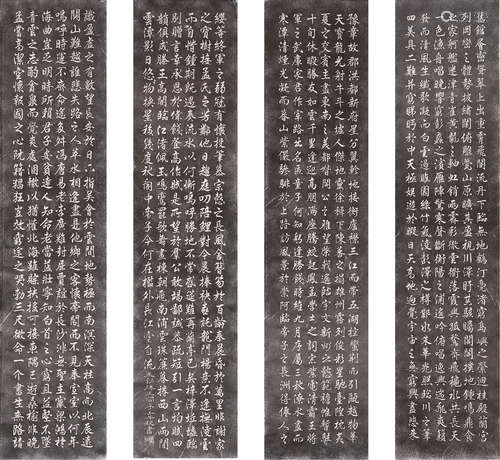 舊館層臺聳翠上出重霄飛閣流丹下臨無地鶴汀鳧渚窮島嶼之縈迴桂殿蘭宮
列岡巒之體勢披繡闥俯雕甍山原曠其盈視川澤紆其駭矚閭閻撲地鐘鳴鼎食
之家舸艦迷津青雀黃龍之軸虹銷雨霽彩徹雲衢落霞與孤鶩齊飛秋水共長天
一色漁舟唱晚響窮彭蠡之濱雁陣驚寒聲斷衡陽之浦遙吟俯暢逸興遄飛爽籟
發而清風生纖歌凝而白雲遏睢園綠竹氣凌彭澤之樽鄴水朱華光照臨川之筆
四美具二難并窮睇眄於中天極娛遊於暇日天高地迥覺宇宙之無窮興盡悲來
豫章故郡洪都新府星分翼軫地接衡廬襟三江而帶五湖控蠻荊而引甌越物華
天寶龍光射牛斗之墟人傑地靈徐孺下陳蕃之榻雄州霧列俊彩星馳臺隍枕夷
夏之交賓主盡東南之美都督閻公之雅望棨戟遙臨宇文新州之懿範襜帷暫駐
十旬休暇勝友如雲千里逢迎高朋滿座騰蛟起鳳孟學士之詞宗紫電清霜王將
軍之武庫家君作宰路出名區童子何知躬逢勝餞時維九月序屬三秋潦水盡而
寒潭清煙光凝而暮山紫儼驂騑於上路訪風景於崇阿臨帝子之長洲得仙人之
纓等終軍之弱冠有懷投筆慕宗愨之長風舍簪笏於百齡奉晨昏於萬里非謝家
之寶樹接孟氏之芳鄰他日趨庭叨陪鯉對今晨捧袂喜託龍門楊意不逢撫凌雲
而自惜鍾期既遇奏流水以何慚嗚呼勝地不常盛筵難再蘭亭已矣梓澤丘墟臨
別贈言幸承恩於偉餞登高作賦是所望於群公敢竭鄙誠恭疏短引一言均賦四
韻俱成滕王高閣臨江渚佩玉鳴鸞罷歌舞畫棟朝飛南浦雲珠簾暮捲西山雨閒
雲潭影日悠悠物換星移幾度秋閣中帝子今何在檻外長江空自流
識盈虛之有數望長安於日下指吳會於雲間地勢極而南溟深天柱高而北辰遠
關山難越誰悲失路之人萍水相逢盡是他鄉之客懷帝閽而不見奉宣室以何年
嗚呼時運不齊命途多舛馮唐易老李廣難封屈賈誼於長沙非無聖主竄梁鴻於
海曲豈乏明時所賴君子安貧達人知命老當益壯寧知白首之心窮且益堅不墜
青雲之志酌貪泉而覺爽處涸轍以猶懽北海雖賒扶搖可接東隅已逝桑榆非晚
孟嘗高潔空懷報國之心阮籍猖狂豈效窮途之哭勃三尺微命一介書生無路請